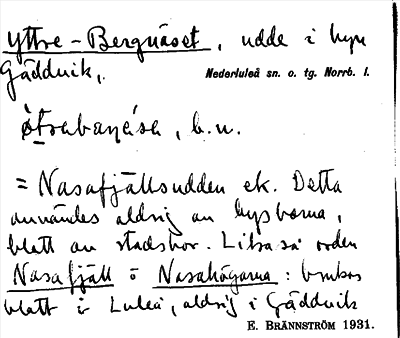 Yttre-Bergnäset, udde i byn
Gäddvik,
Nederluleå sn. o. tg. Norrb. l.
b.n.
= Nasafjällsudden ek. Detta
användes aldrig av bysborna,
blott av stadsbor. Likaså orden
Nasafjäll o Nasahögarna: brukas
blott i Luleå, aldrig i Gäddvik
E. BRÄNNSTRÖM 1931.